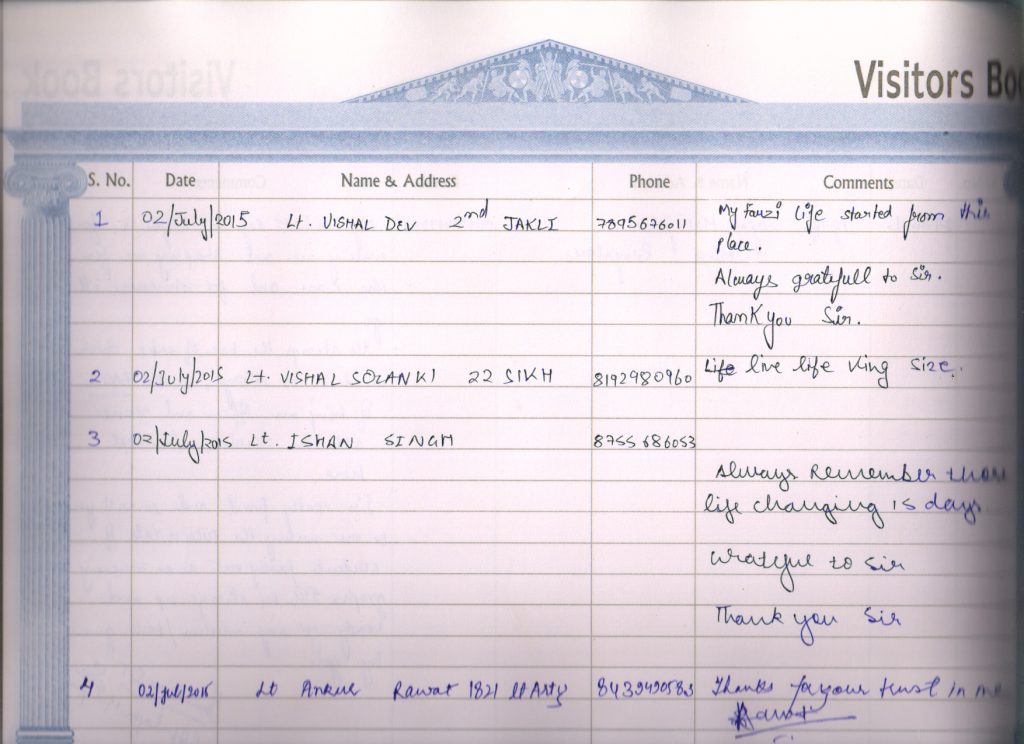 Visitors Bo
S. No. Date Name & Address Phone Comments
1 02/July/2015 Lt. VISHAL DEV 2nd JAKLI 7895676011 My Fauzi life started from this
place.
Always gratefull to Sir.
Thank you Sir.
2 02/July/2015 Lt. VISHAL SOLANKI 22 SIKH 8192980960 Life live life king size.
3 02/July/2015 Lt. ISHAN SINGH 8755686053
Always Remember those
life changing 15 days
Grateful to Sir
Thank you Sir
4 02/Jul/2015 Lt Ankur Rawat 1821 Lt Arty Thanks for your trust in me
Rawat